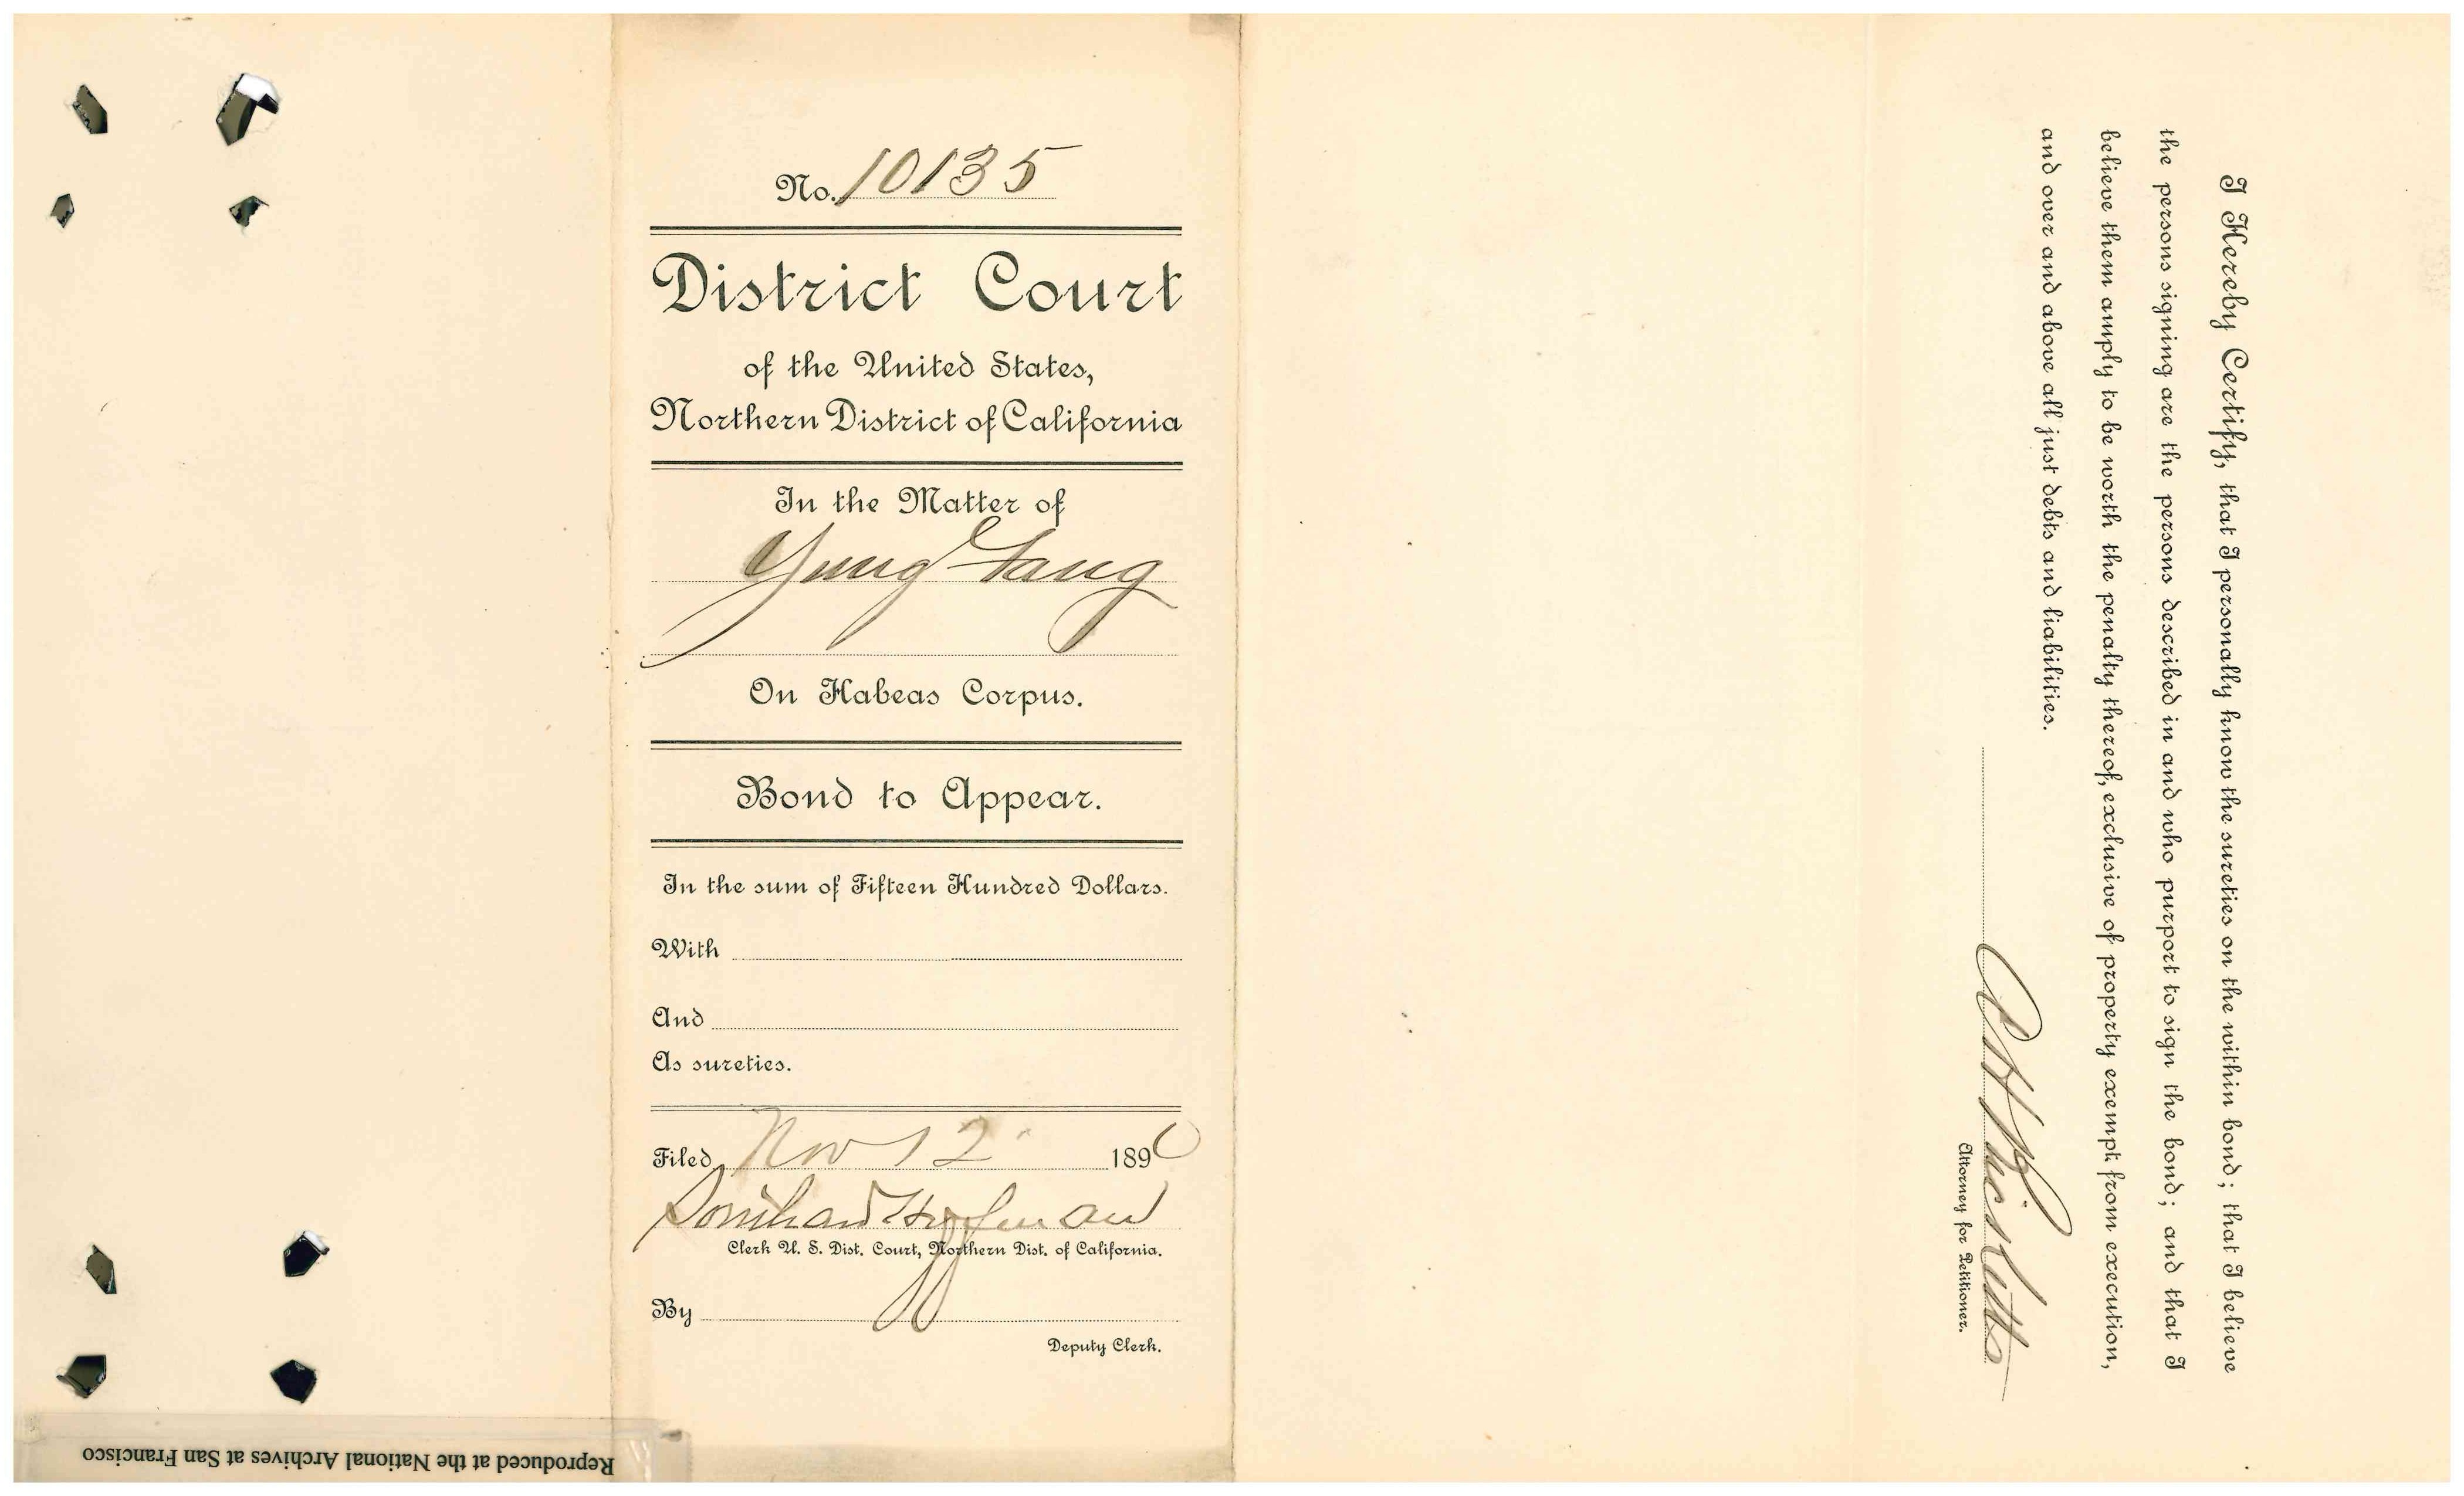 No. 10135
District Court
of the United States,
Northern District of California
In the Matter of
Yung Tang
On Habeas Corpus.
Bond to Appear.
In the sum of Fifteen Hundred Dollars.
With
And
As sureties.
Filed Nov 12 1890
Southard Hoffman
Clerk U. S. Dist. Court, Northern Dist. of California.
By
Deputy Clerk.
I Hereby Certify, that I personally know the sureties on the within bond; that I believe
the persons signing are the persons described in and who purport to sign the bond; and that I
believe them amply to be worth the penalty thereof, exclusive of property exempt from execution,
and over and above all just debts and liabilities.
Attorney for Petitioner.
Reproduced at the National Archives at San Francisco